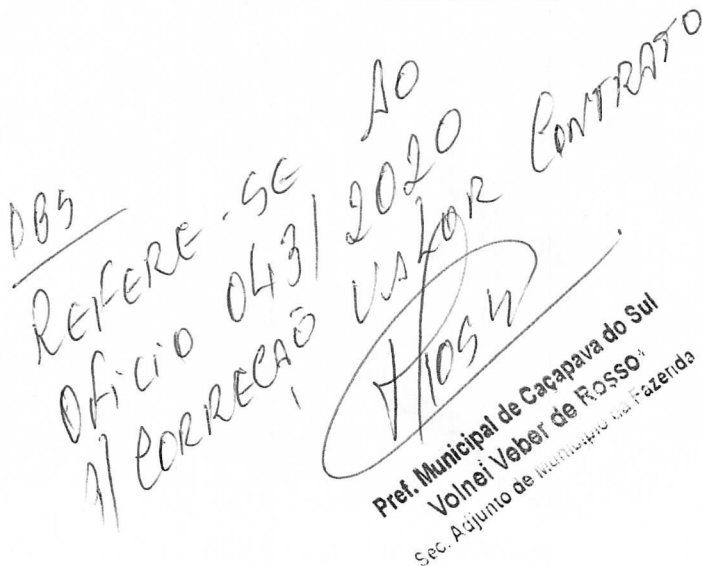 OBS
REFERE-SE AO
OFICIO 043/2020
P/ CORREÇAÕ VALOR CONTRATO
Pref. Municipal de Caçapava do Sul
Volnei Veber de Rosso
Sec. Adjunto de Município da Fazenda